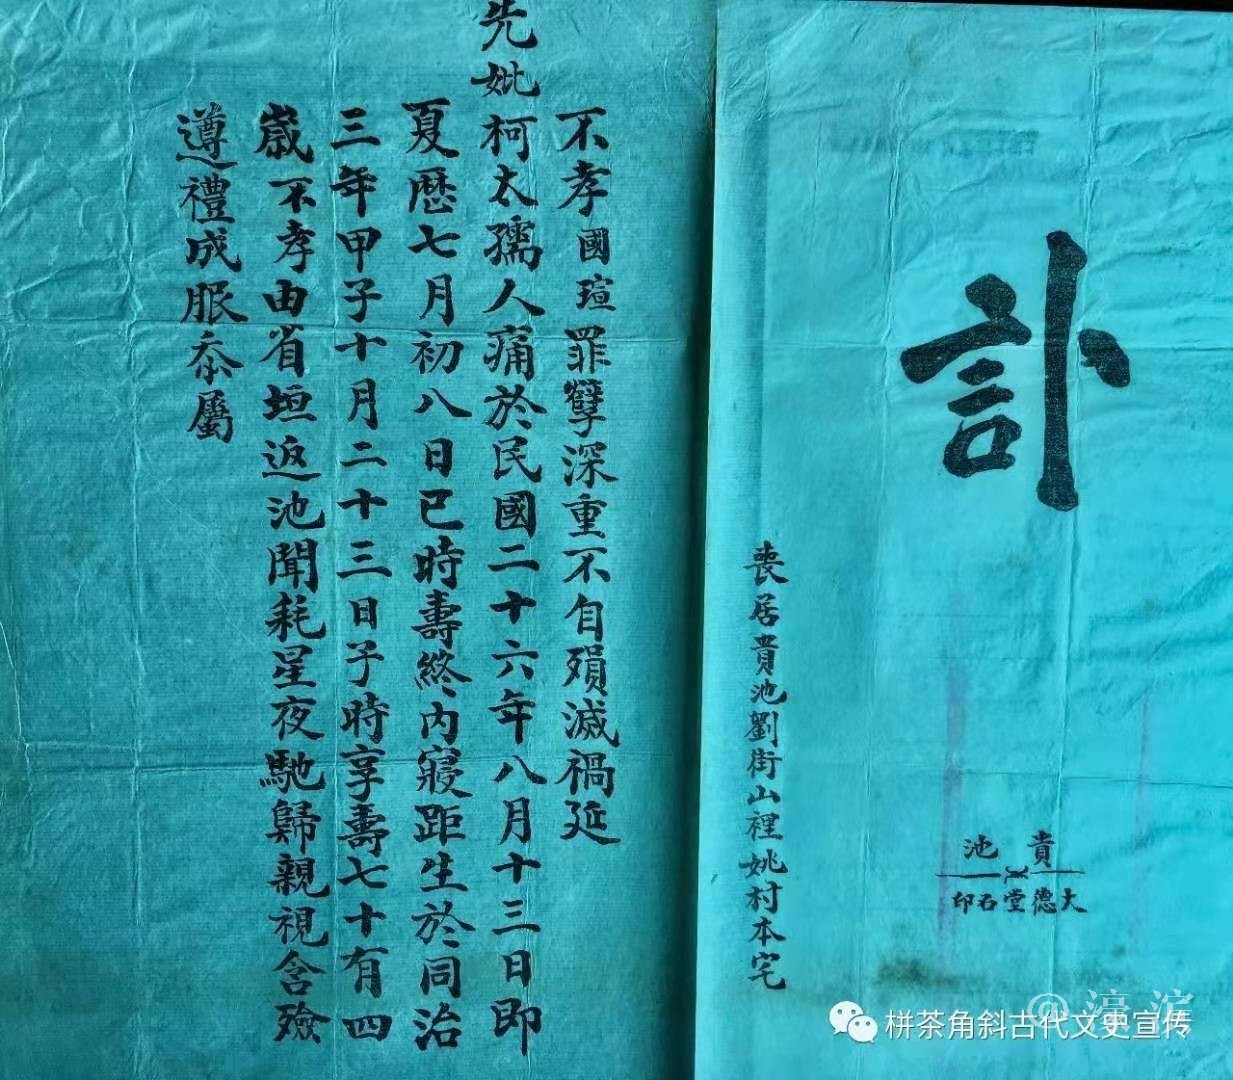 訃
貴池
大德堂石印
喪居貴池劉街山裡姚村本宅
不孝國瑄罪孽深重不自殞滅禍延
先妣柯太孺人痛於民國二十六年八月十三日即
夏歷七月初八日巳時壽終內寢距生於同治
三年甲子十月二十三日子時享壽七十有四
歲不孝由省垣返池聞耗星夜馳歸親視含殮
遵禮成服忝屬
栟茶角斜古代文史宣传